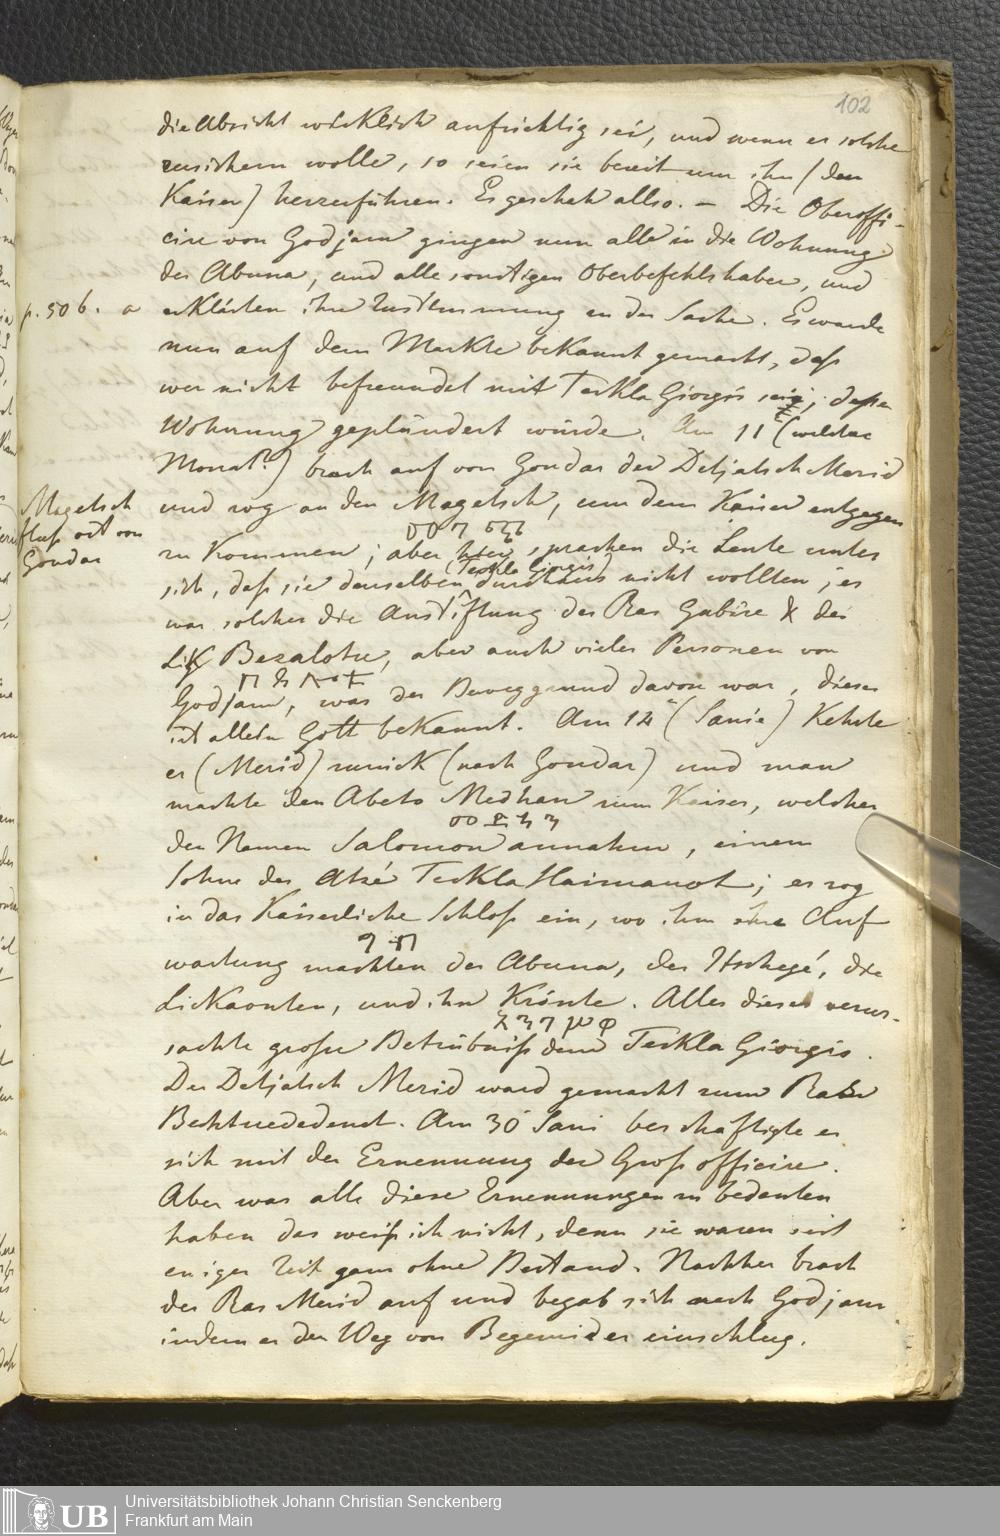 102
die Absicht wirklich aufrichtig sei, und wenn er solche
zusichern wolle, so seien sie bereit um ihn (den
Kaiser) herzuführen. Es geschah allso. – Die Oberoffi-
cire von Godjam gingen nun alle in die Wohnung
des Abuna, und alle sonstigen Oberbefehlshaber, und
p. 506. a erklärten ihre Zustimmung zu der Sache. Es wurde
nun auf dem Markte bekannt gemacht, daß
wer nicht befreundet mit Teckla Giorgis sei, deßen
Wohnung geplündert würde. Am 11 (welcher
Monat?) brach auf von Gondar der Detjatsch Merid
und zog an den Magetsch, um dem Kaiser entgegen
Magetsch
fluß ost von
Gondar
መገጭ
zu kommen; aber hier sprachen die Leute unter
(Teckla Giorgis)
sich, daß sie denselben durchaus nicht wollten; es
war solches die Anstiftung des Ras Gabire & des
Lik Bezalotu, aber auch vieler Personen von
በጸሎቱ
Godjam, was der Beweggrund davon war, dieses
ist allein Gott bekannt. Am 14 (Sanie) kehrte
er (Merid) zurück (nach Gondar) und man
machte den Abeto Medhan zum Kaiser, welcher
መድኅን
den Namen Salomon annahm, einem
Sohne des Atzé Teckla Haimanot; er zog
in das Kaiserliche Schloß ein, wo ihm ihre Auf
wartung machten der Abuna, der Itschegé, die
Lickaonten, und ihn krönte. Alles dieses verur-
sachte große Betrübniß dem Teckla Giorgis.
Der Detjatsch Merid ward gemacht zum Ras
Bechtwededenet. Am 30 Sani beschäftigte er
sich mit der Ernennung der Großofficire.
Aber was alle diese Ernennungen zu bedeuten
haben das weiß ich nicht, denn sie waren seit
einiger Zeit ganz ohne Bestand. Nachher brach
der Ras Merid auf und begab sich nach Godjam
indem er den Weg von Begemider einschlug.
Universitätsbibliothek Johann Christian Senckenberg
Frankfurt am Main
UB